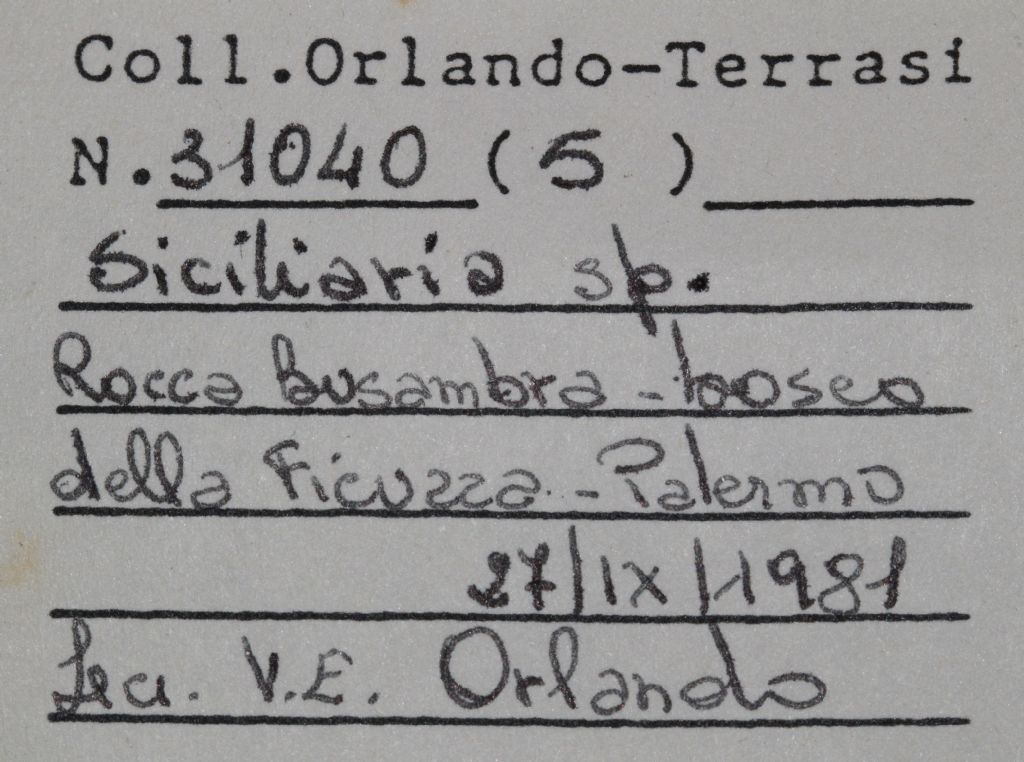 Coll.Orlando-Terrasi
N.31040 (5)
Siciliaria sp.
Rocca Busambra - bosco
della Ficuzza - Palermo
27/IX/1981
Leg. V.E. Orlando